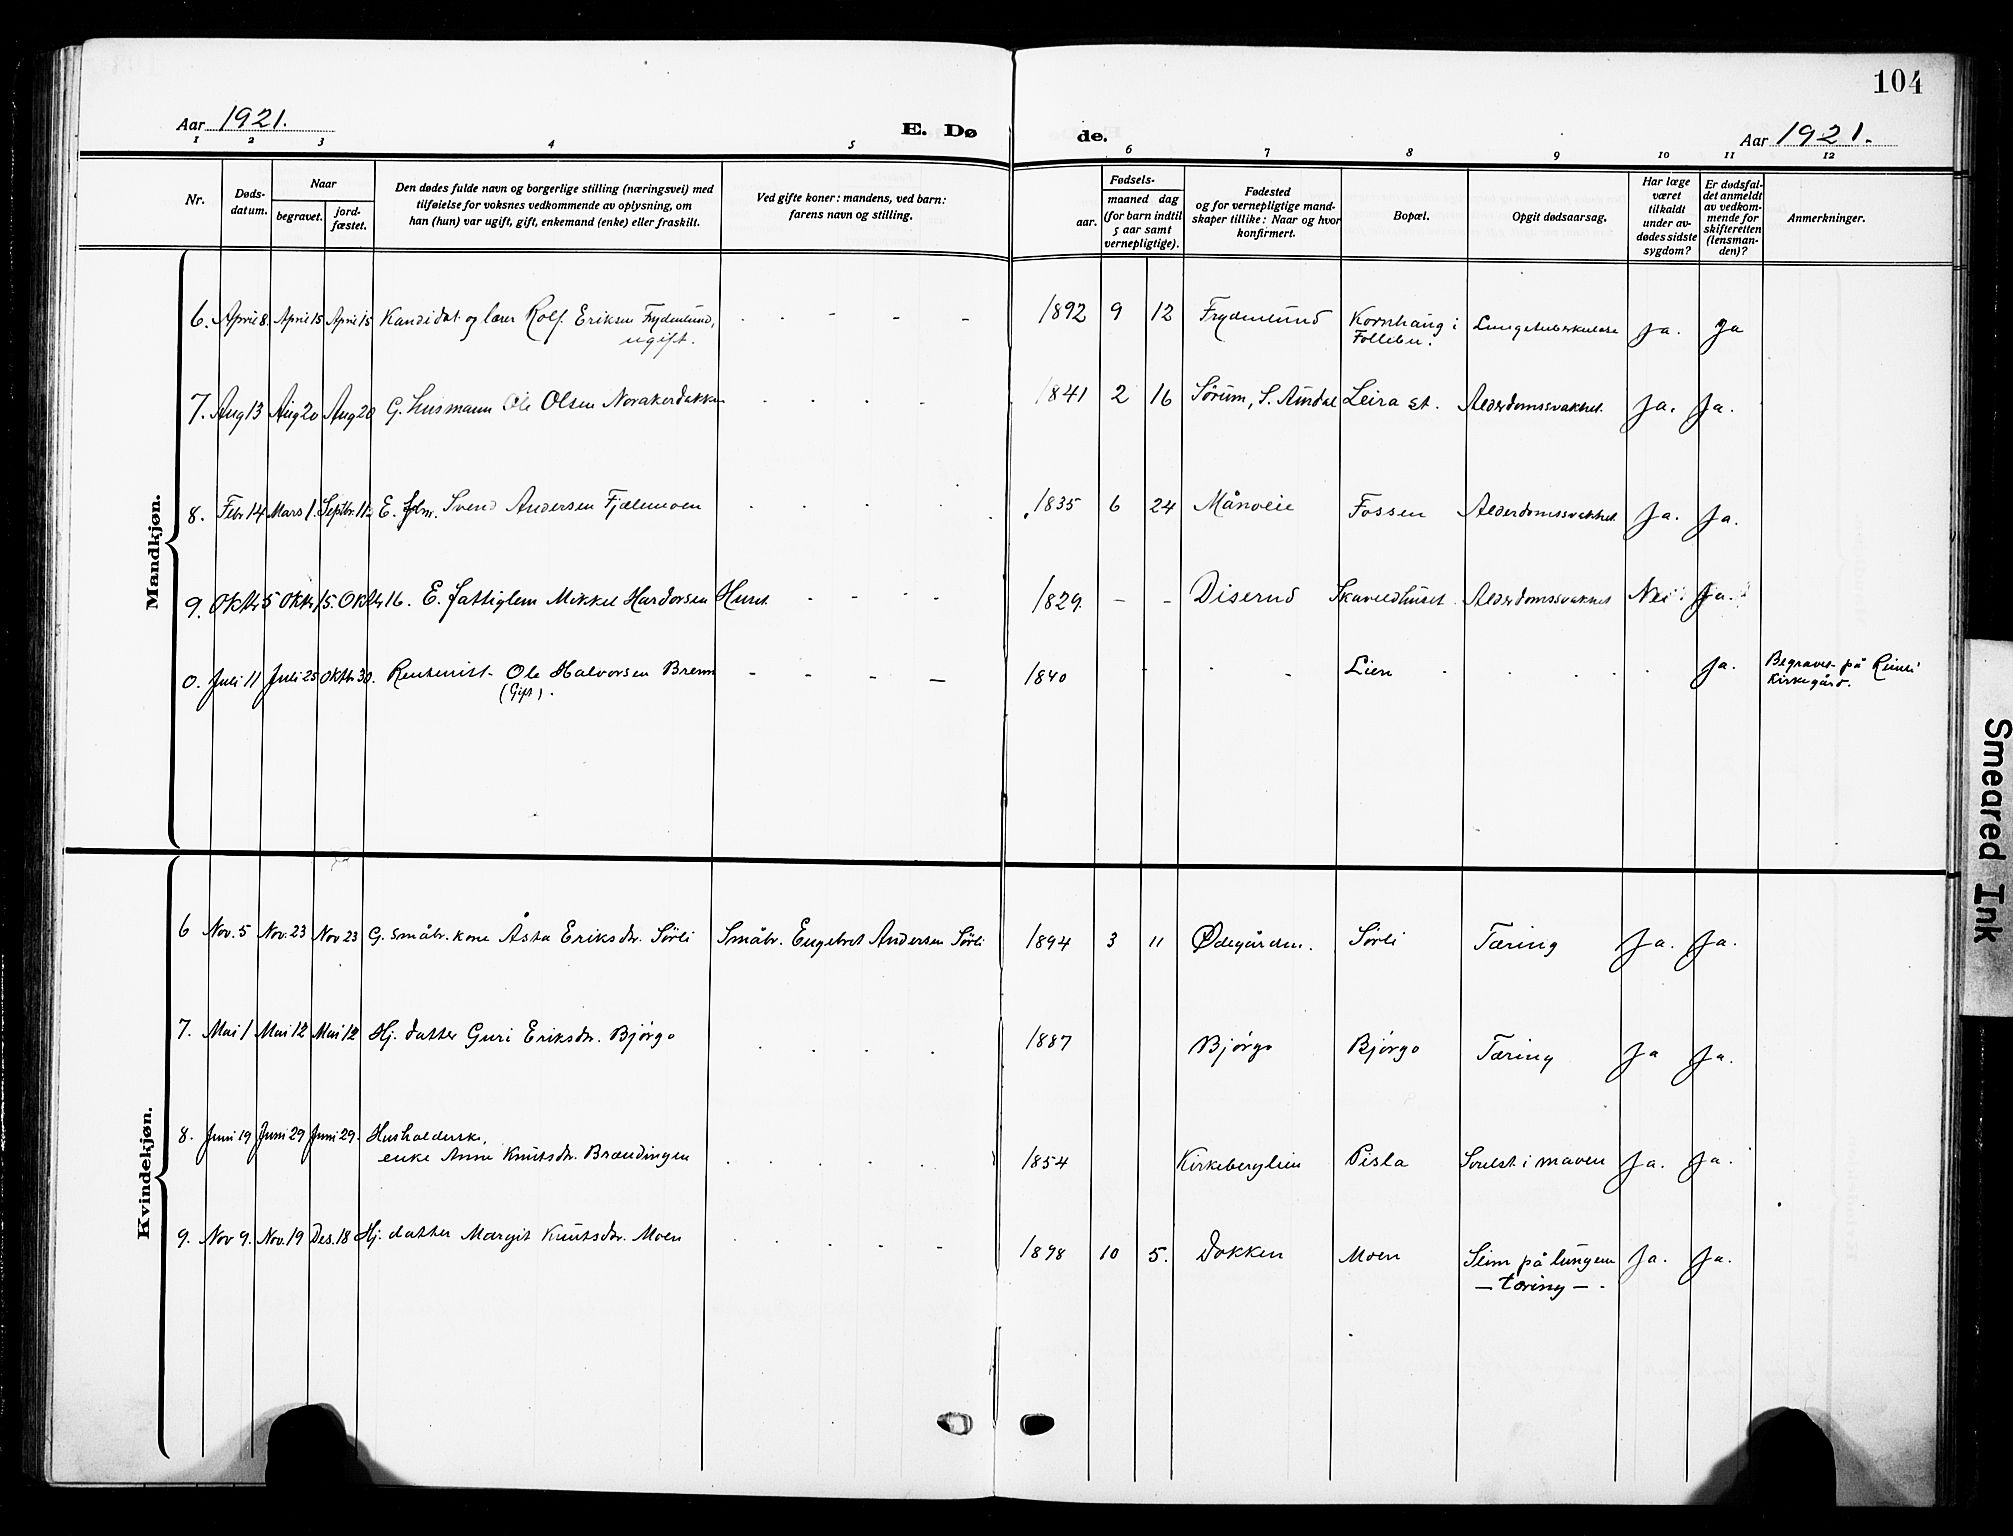 104
Aar 1921.
E. Dø
de.
Aar 1921.
1 2 3 4 5 6 7 8 9 10 11 12
Nr.
Døds-
datum.
Naar
begravet.
jord-
fæstet.
Den dødes fulde navn og borgerlige stilling (næringsvei) med
tilføielse for voksnes vedkommende av oplysning, om
han (hun) var ugift, gift, enkemand (enke) eller fraskilt.
Ved gifte koner: mandens, ved barn:
farens navn og stilling.
Fødsels-
aar.
maaned dag
(for barn indtil
5 aar samt
vernepligtige).
Fødested
og for vernepligtige mand-
skaper tillike: Naar og hvor
konfirmert.
Bopæl.
Opgit dødsaarsag.
Har læge
været
tilkaldt
under av-
dødes sidste
sygdom?
Er dødsfal-
det anmeldt
av vedkom-
mende for
skifteretten
(lensman-
den)?
Anmerkninger.
Mandkjøn.
6. April 8. April 15 April 15 Kandidat og lærer Rolf Eriksen Frydenlund, - - - - 1892 9 12 Frydenlund Kornhaug i Lungetuberkulose Ja. Ja
ugift. Follebu.
7. Aug 13 Aug 20 Aug 20 G. husmann Ole Olsen Noraker 1841 2 16 Sørum, S. Aurdal Leira st. Alderdomssvakhet. Ja. Ja.
8. Febr 14 Mars 1. Septbr. 11. E. Svend Andersen Fjellmoen 1835 6 24 Månveie Fossen Alderdomssvakhet Ja. Ja.
9. Oktbr 5 Oktbr 15. Oktbr 16. E. fattiglem Mikkel Hardorsen Huset - - - - 1829. - - Diserud Skavelldhuset Alderdomssvakhet Nei Ja.
0. Juli 11 Juli 25 Oktbr 30. Rentenist Ole Halvorsen Brenn - - - - 1840 - Lien Ja. Begravet på Reinli
(Gift). Kirkegård.
Kvindekjøn.
6 Nov. 5 Nov. 23 Nov 23 G. småbr. kone Åsta Eriksdtr. Sørli Småbr. Engebret Andersen Sørli 1894 3 11 Ødegården. Sørli Tæring Ja. Ja.
7. Mai 1 Mai 12 Mai 12 Hj. datter Guri Eriksdtr. Bjørgo 1887 Bjørgo Bjørgo Tæring Ja Ja.
8. Juni 19 Juni 29 Juni 29. Husholderske,
enke Anne Knutsdtr. Brændingen 1854 Kirkeberglien Pisla Svulst i maven Ja. Ja.
9. Nov 9. Nov. 19 Des. 18 Hj. datter Margit Knutsdtr. Moen 1898 10 5. Dokken Moen Slim på lungene Ja. Ja.
- tæring -
Smeared Ink